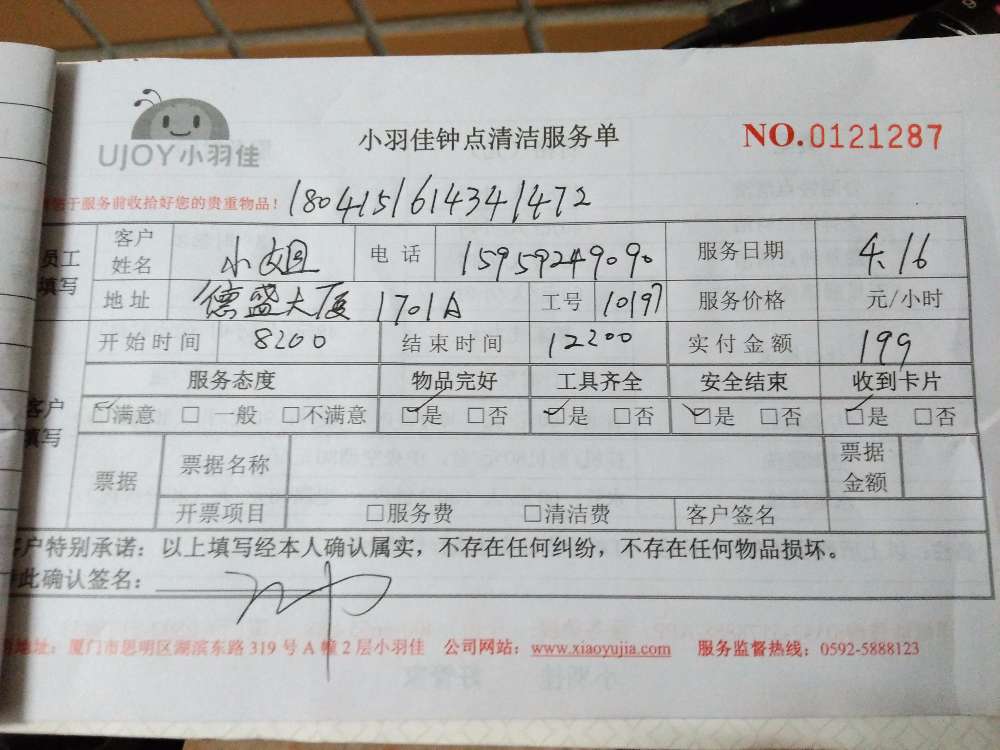 UJOY小羽佳
小羽佳钟点清洁服务单
NO.0121287
于服务前收拾好您的贵重物品！ 1804151614341472
员工填写 客户姓名 小姐 电话 15959249090 服务日期 4.16
地址 德盛大厦 1701A 工号 10197 服务价格 元/小时
开始时间 8200 结束时间 12200 实付金额 199
客户填写 服务态度 物品完好 工具齐全 安全结束 收到卡片
☑满意 □一般 □不满意 ☑是 □否 ☑是 □否 ☑是 □否 ☑是 □否
票据 票据名称 票据金额
开票项目 □服务费 □清洁费 客户签名
客户特别承诺：以上填写经本人确认属实，不存在任何纠纷，不存在任何物品损坏。
此确认签名：
地址：厦门市思明区湖滨东路319号A幢2层小羽佳 公司网站：www.xiaoyujia.com 服务监督热线：0592-5888123